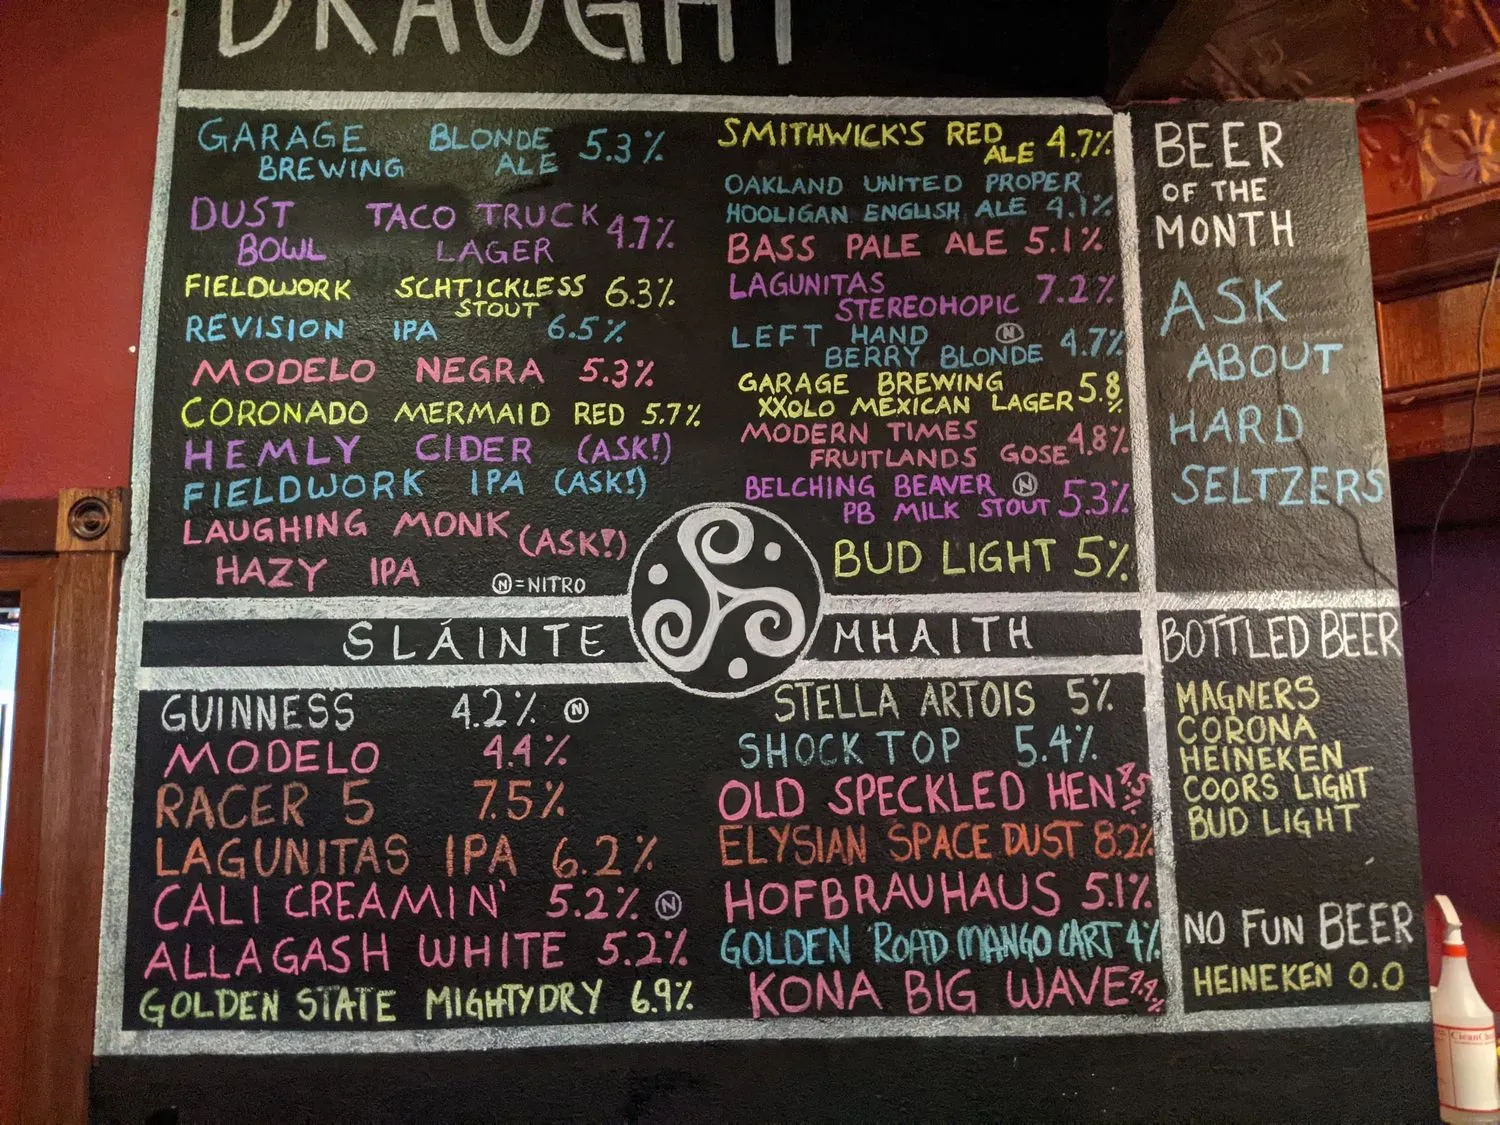 DRAUGHT
GARAGE BLONDE 5.3%
BREWING ALE
DUST TACO TRUCK 4.7%
BOWL LAGER
FIELDWORK SCHTICKLESS 6.3%
STOUT
REVISION IPA 6.5%
MODELO NEGRA 5.3%
CORONADO MERMAID RED 5.7%
HEMLY CIDER (ASK!)
FIELDWORK IPA (ASK!)
LAUGHING MONK (ASK!)
HAZY IPA
Ⓝ=NITRO
SMITHWICK'S RED
ALE 4.7%
OAKLAND UNITED PROPER
HOOLIGAN ENGLISH ALE 4.1%
BASS PALE ALE 5.1%
LAGUNITAS 7.2%
STEREOHOPIC
LEFT HAND Ⓝ 4.7%
BERRY BLONDE
GARAGE BREWING 5.8%
XXOLO MEXICAN LAGER
MODERN TIMES 4.8%
FRUITLANDS GOSE
BELCHING BEAVER Ⓝ 5.3%
PB MILK STOUT
BUD LIGHT 5%
SLÁINTE MHAITH
GUINNESS 4.2% Ⓝ
MODELO 4.4%
RACER 5 7.5%
LAGUNITAS IPA 6.2%
CALI CREAMIN' 5.2% Ⓝ
ALLAGASH WHITE 5.2%
GOLDEN STATE MIGHTY DRY 6.9%
STELLA ARTOIS 5%
SHOCK TOP 5.4%
OLD SPECKLED HEN 4.5%
ELYSIAN SPACE DUST 8.2%
HOFBRAUHAUS 5.1%
GOLDEN ROAD MANGO CART 4%
KONA BIG WAVE 4.4%
BEER
OF THE
MONTH
ASK
ABOUT
HARD
SELTZERS
BOTTLED BEER
MAGNERS
CORONA
HEINEKEN
COORS LIGHT
BUD LIGHT
NO FUN BEER
HEINEKEN 0.0